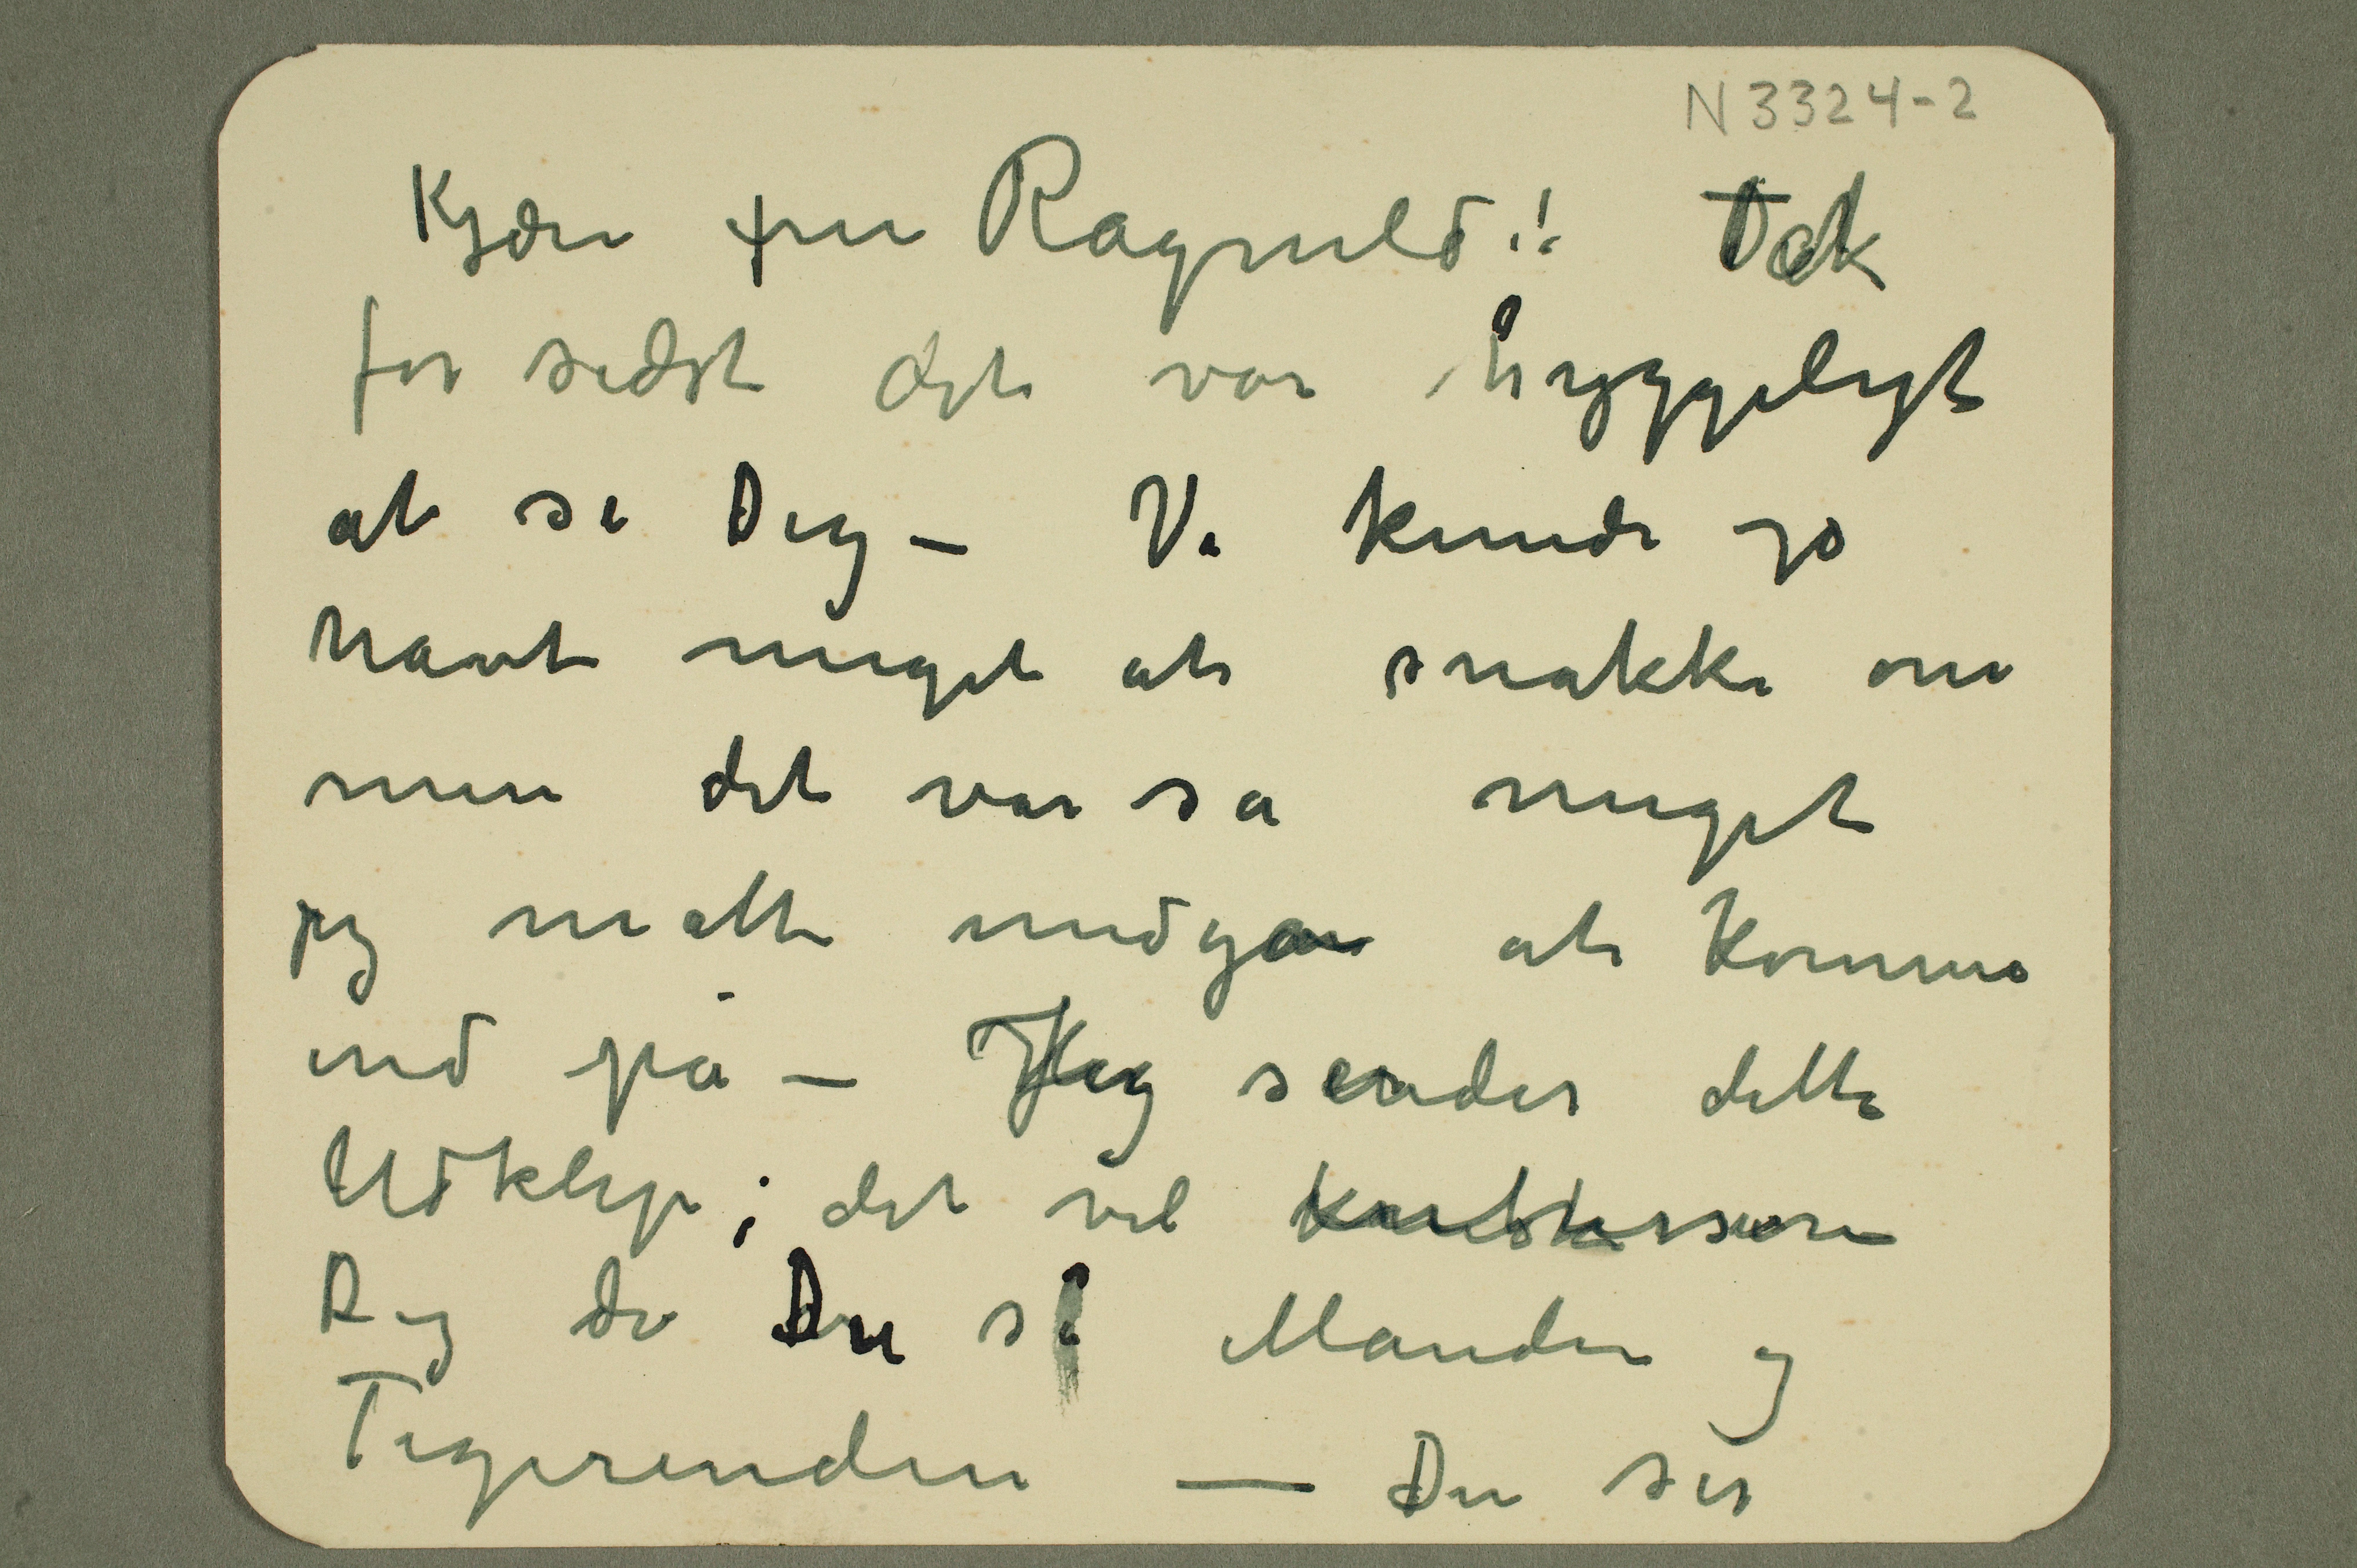 N 3324-2
Kjære fru Ragnhild!! Tak
for sidst det var hyggeligt
at se Dig – Vi kunde jo
havt meget at snakke om
men det var så meget
jeg måtte undgåe at komme
ind på – Jeg sender dette
Udklip; det vil
Dig da Du så Manden og
Tigerinden — Du ser